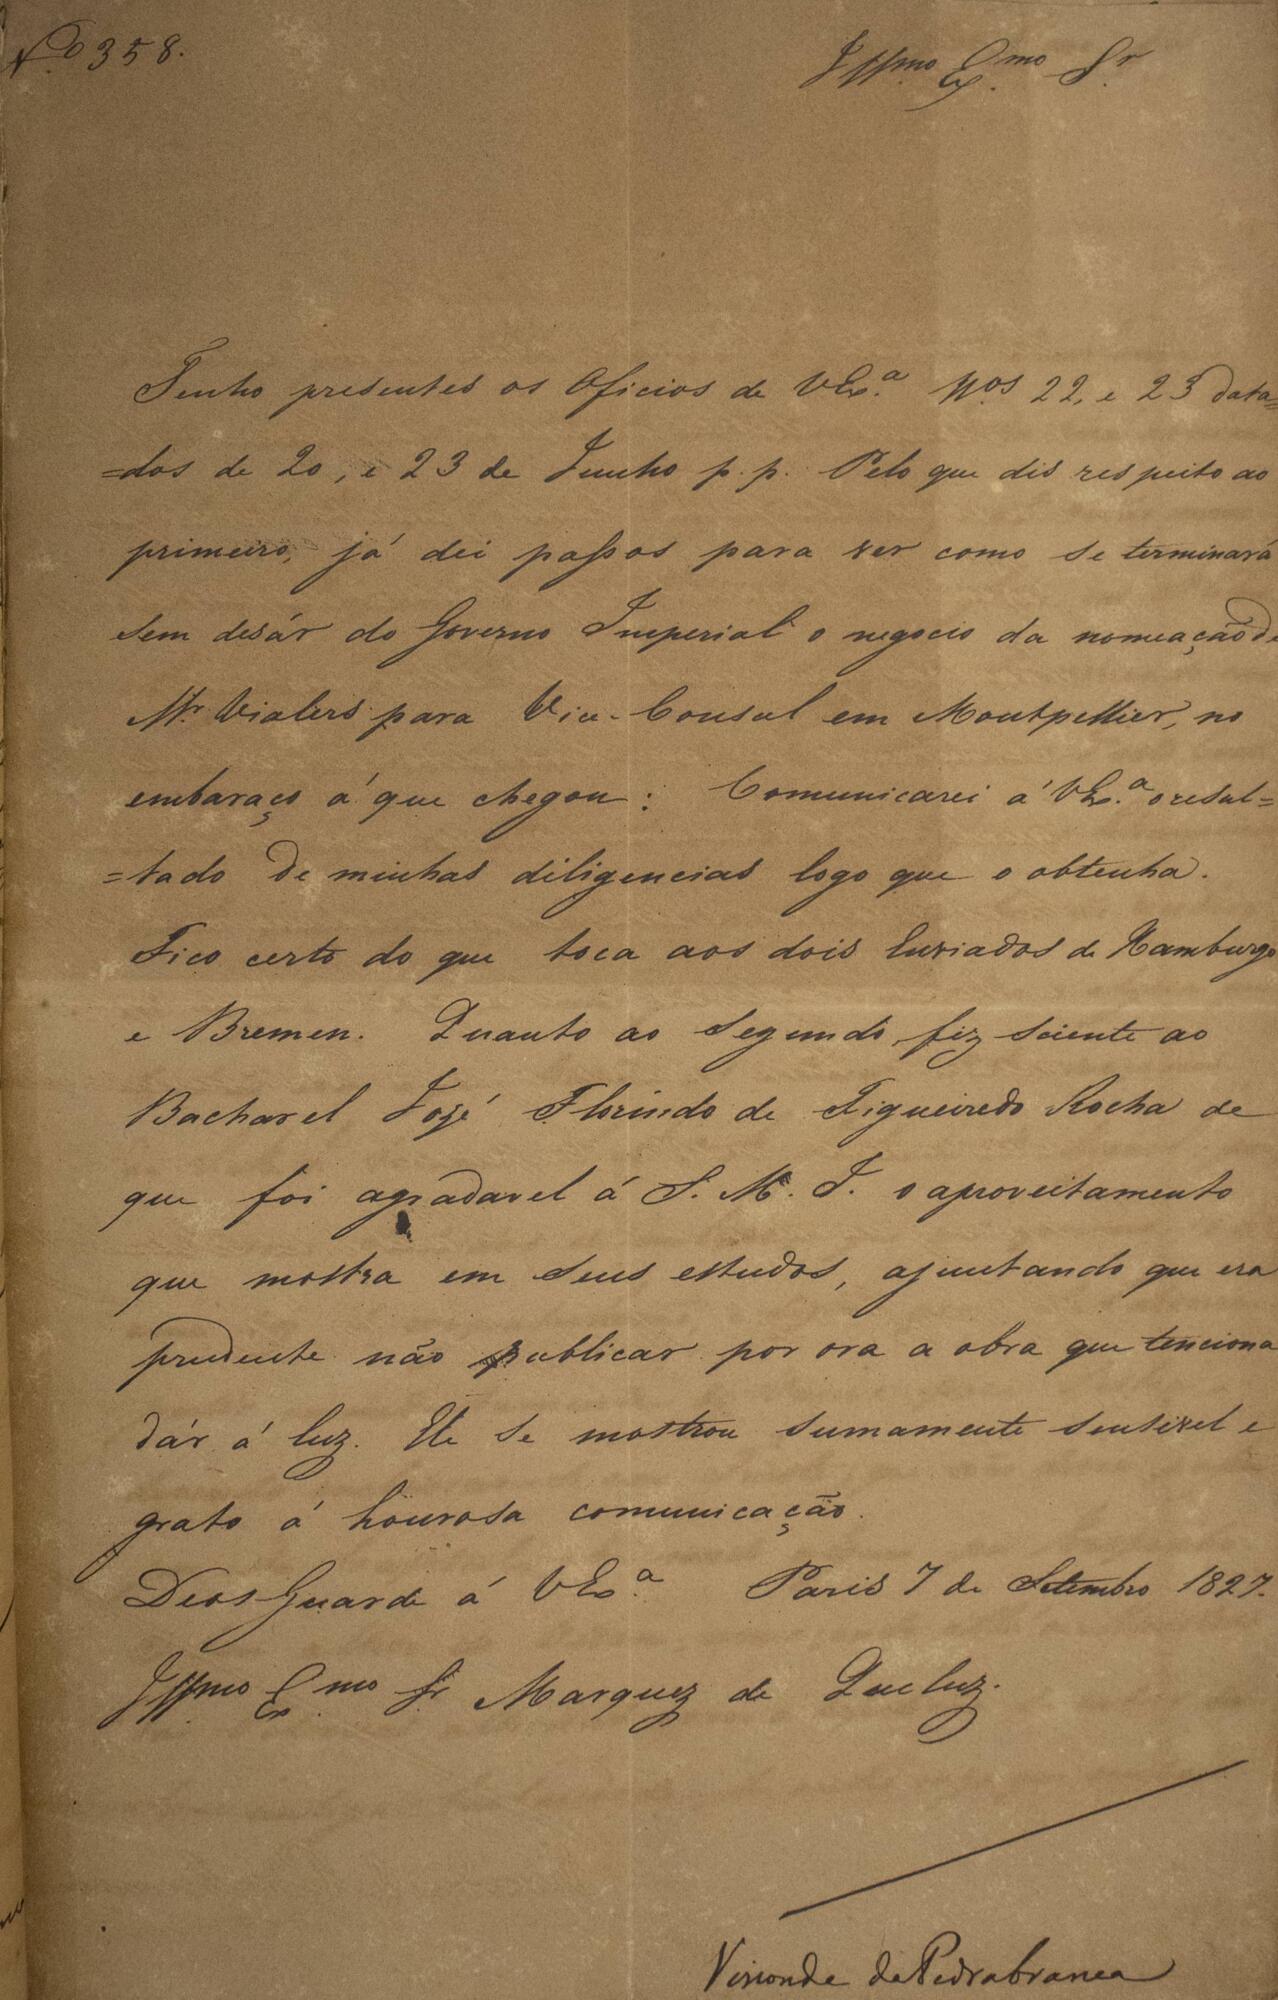 Nº 358.
Illmo. Exmo. Sr.
Tenho presentes os Oficios de VExª. Nos. 22, e 23 data=
=dos de 20, e 23 de Junho p. p. Pelo que dis respeito ao
primeiro, já dei passos para ver como se terminará
sem desár do Governo Imperial o negocio da nomeação de
Mr. Vialers para Vice-Consul em Montpellier, no
embaraço á que chegou: Comunicarei á VExª. o resul=
=tado de minhas diligencias logo que o obtenha.
Fico certo do que toca aos dois Enviados de Hamburgo
e Bremen. Quanto ao segundo, fiz sciente ao
Bacharel Jozé Florindo de Figueiredo Rocha de
que foi agradavel á S. M. I. o aproveitamento
que mostra em seus estudos, ajuntando que era
prudente não publicar por ora a obra que tenciona
dár á luz. Ele se mostrou sumamente sensivel e
grato á honrosa comunicação.
Deos Guarde á VExª. Paris 7 de Setembro 1827.
Illmo. Exmo. Sr. Marquez de Queluz.
Visconde de Pedrabranca